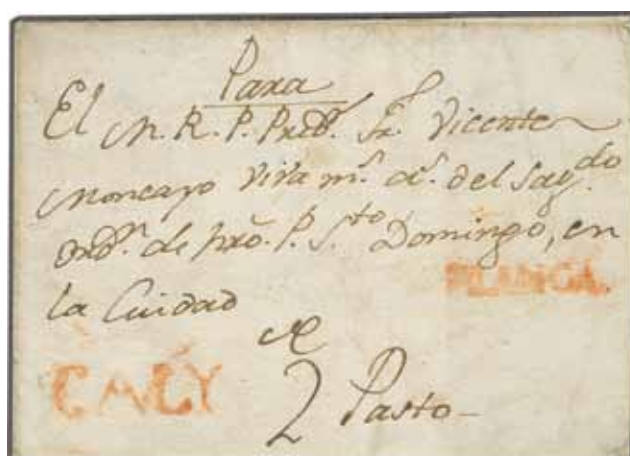 Para
El M. R. P. Predr. Fr. Vicente
Moncayo Viva ms. as. del Sagdo
Ordn. de nrō. P. Sto Domingo, en
la Cuidad
FRANCA.
de
CALY
2 Pasto